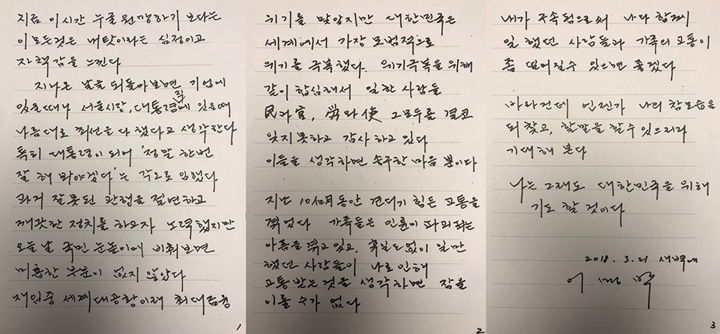 지금 이 시간 누굴 원망하기 보다는
이 모든것은 내 탓이라는 심정이고
자책감을 느낀다
지나온 날을 되돌아보면, 기업에
있을때나 서울시장, 대통령직에 있을때
나름대로 최선을 다 했다고 생각한다
특히 대통령이 되어 '정말 한번
잘 해 봐야겠다'는 각오로 임했다
과거 잘못된 관행을 절연하고
깨끗한 정치를 하고자 노력했지만
오늘 날 국민 눈높이에 비춰보면
미흡한 부분이 없지 않았다
재임중 세계대공황이래 최대 금융
1
위기를 맞았지만 대한민국은
세계에서 가장 모범적으로
위기를 극복했다. 위기극복을 위해
같이 합심해서 일한 사람들
民과 官, 勞와 使 그 모두를 결코
잊지 못하고 감사하고 있다
이들을 생각하면 송구한 마음 뿐이다
지난 10개월 동안 견디기 힘든 고통을
겪었다 가족들은 인륜이 파괴되는
아픔을 겪고 있고, 휴일도 없이 일만
했던 사람들이 나로 인해
고통받는 것을 생각하면 잠을
이룰 수가 없다
2
내가 구속됨으로써 나와 함께
일했던 사람들과 가족의 고통이
좀 덜어질수 있으면 좋겠다
바라건데 언젠가 나의 참모습을
되찾고, 할말을 할 수 있으리라
기대해 본다
나는 그래도 대한민국을 위해
기도 할 것이다
2018. 3. 21 새벽에
이 명 박
3